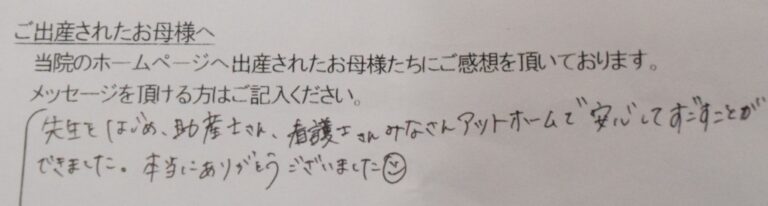 ご出産されたお母様へ
当院のホームページへ出産されたお母様たちにご感想を頂いております。
メッセージを頂ける方はご記入ください。
先生をはじめ、助産士さん、看護士さんみなさんアットホームで安心してすごすことが
できました。本当にありがとうございました